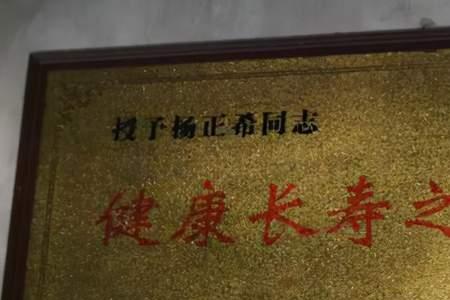 授予杨正希同志
健康长寿之